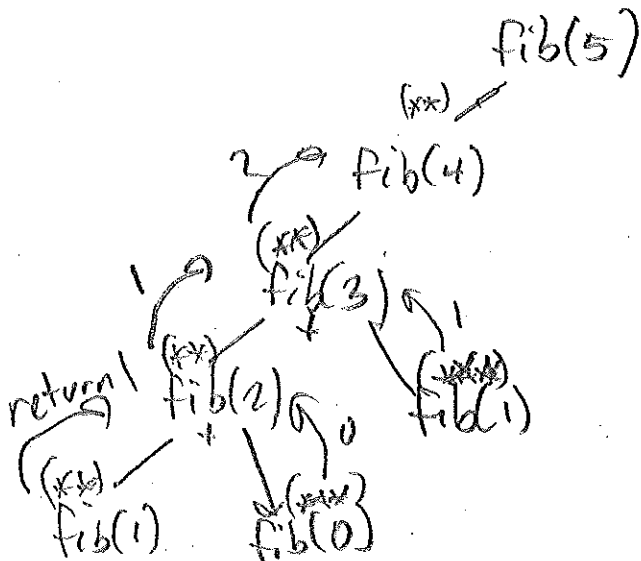 fib(5)
(**)
2
fib(4)
(**)
1
fib(3)
+
1
(**)
return 1
fib(2)
+
(***)
fib(1)
0
(**)
fib(1)
(***)
fib(0)